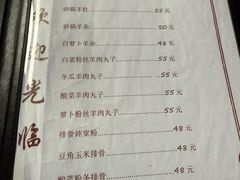 欢迎光临
砂锅羊肚 55 元
砂锅羊杂 50 元
白萝卜羊杂 48 元
白菜粉丝羊肉丸子 55 元
冬瓜羊肉丸子 55 元
酸菜羊肉丸子 55 元
萝卜粉丝羊肉丸子 55 元
排骨炖宽粉 48 元
豆角玉米排骨 48 元
酸菜粉条排骨